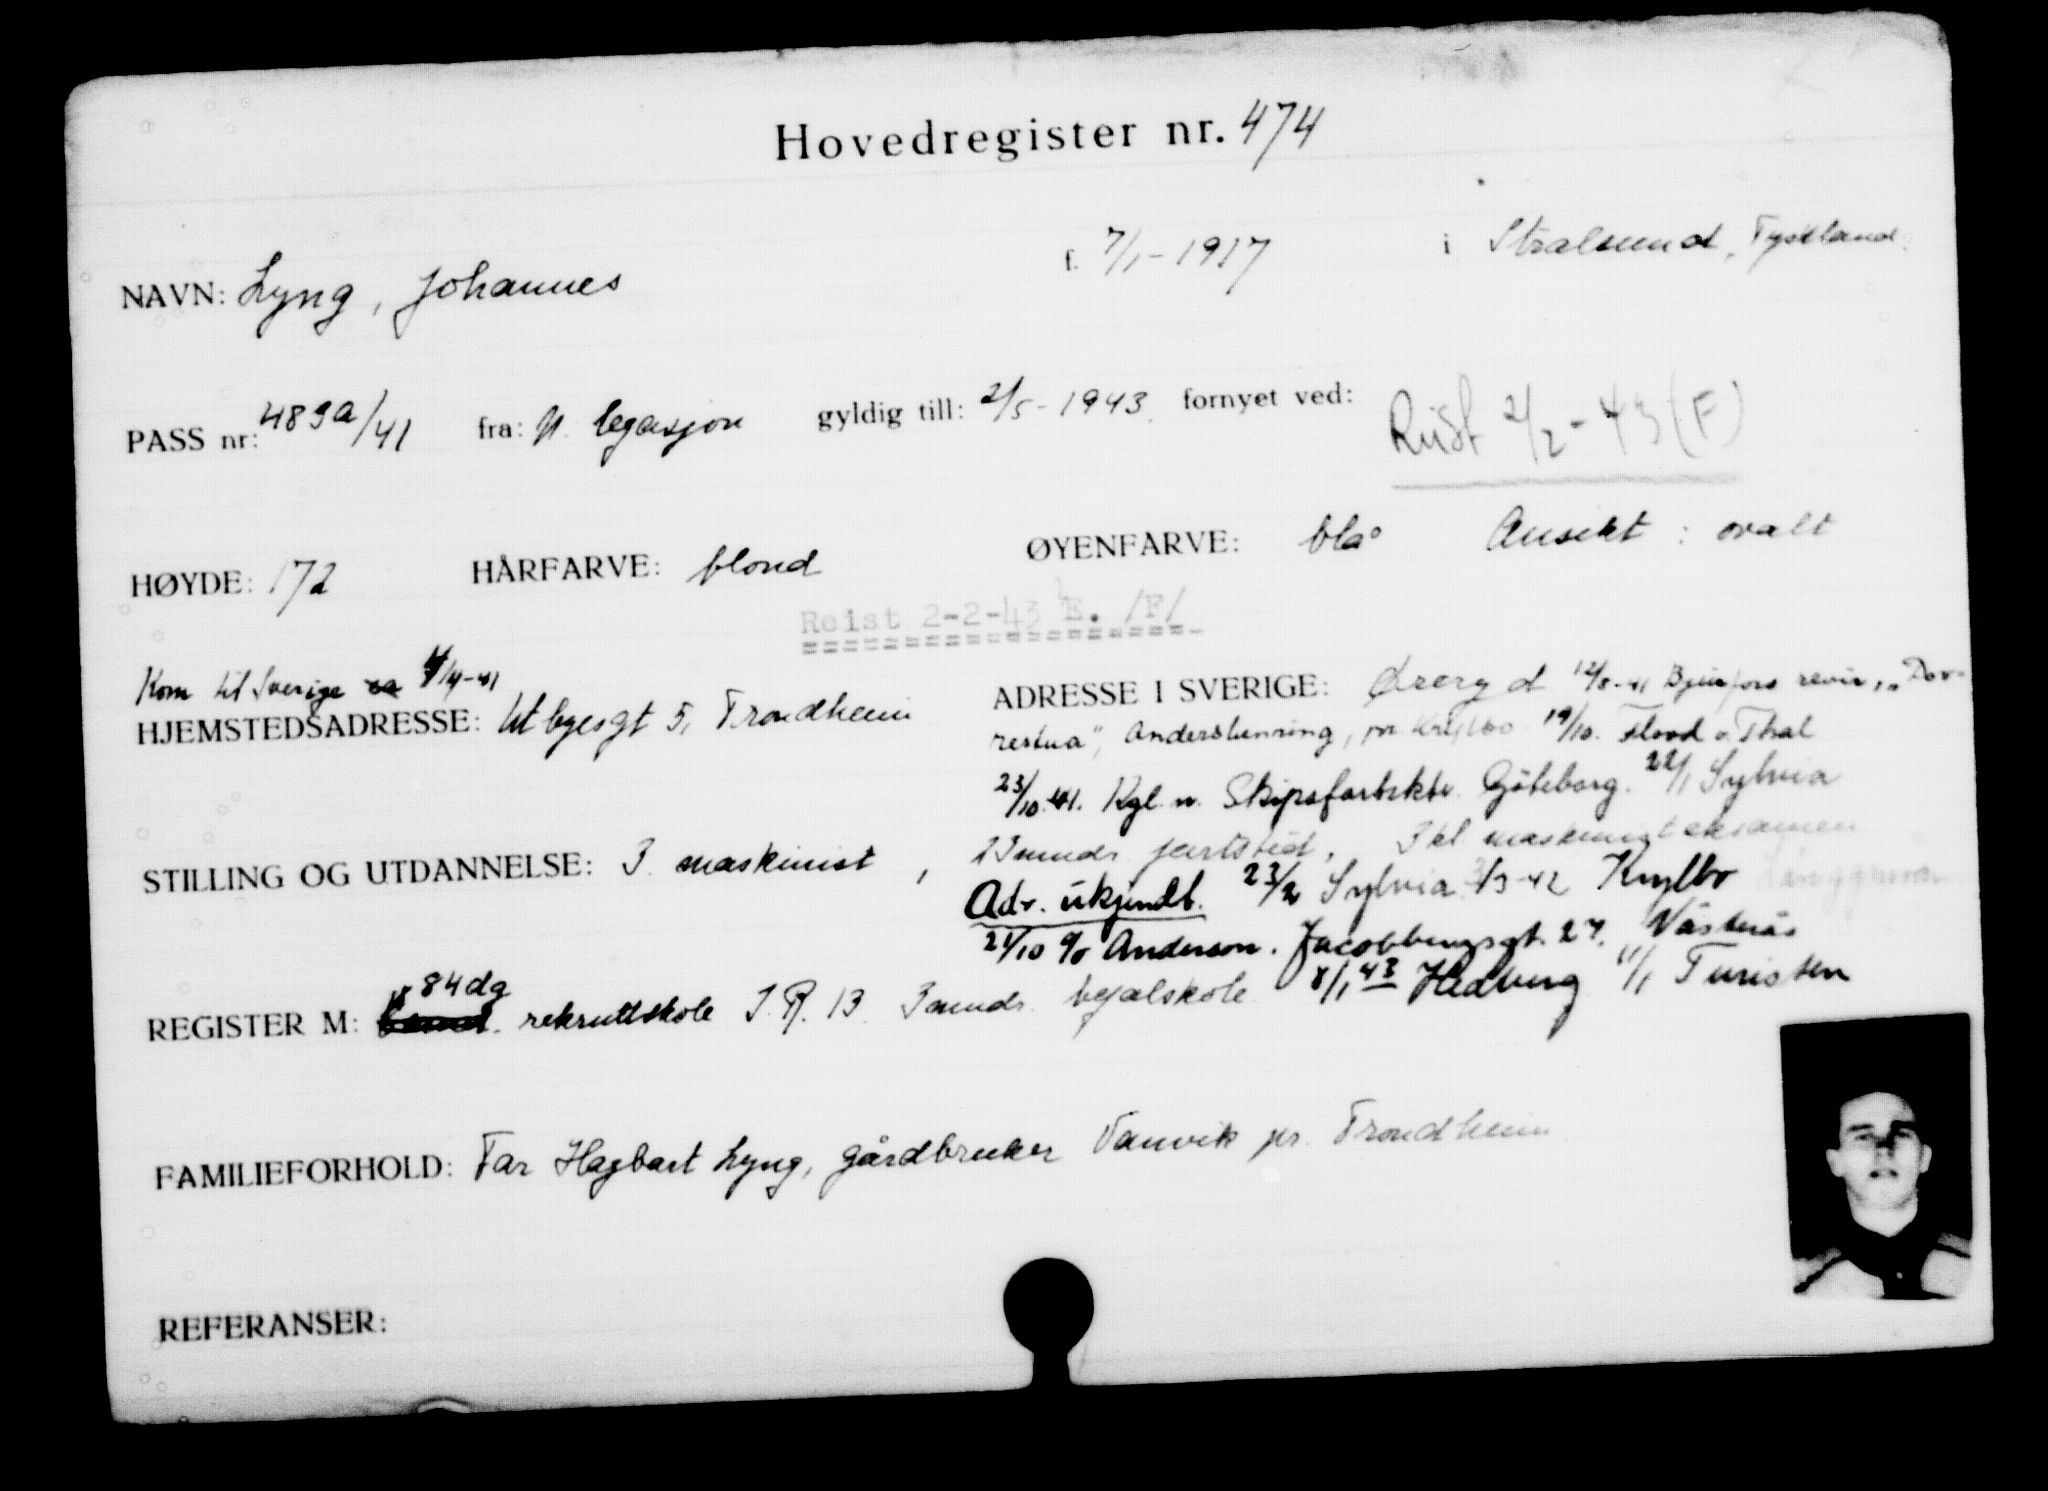 Hovedregister nr. 474
NAVN: Lyng, Johannes f. 7/1-1917 i Stralsund, Tyskland.
PASS nr: 489a/41 fra: N. legasjon gyldig till: 2/5-1943. fornyet ved:
Reist 2/2-43 (F)
HØYDE: 172 HÅRFARVE: blond ØYENFARVE: blå Ansikt: ovalt
Reist 2-2-43 E. /F/
Kom til Sverige 4/4-41
HJEMSTEDSADRESSE: 5, Trondheim
ADRESSE I SVERIGE: Øreryd 12/8-41 Bjurfors revir, "Dor-
restua", Andersbenning, pr. Krylbo 19/10. Flood v. Thal
23/10.41. Kgl. n. Skipsfartsktr. Göteborg. 22/1 Sylvia
STILLING OG UTDANNELSE: 3. maskinist, 23 mndr. fartstid, 3 kl. maskinisteksamen
Adr. ukjendt. 23/2 Sylvia 3/3-42 Krylbo
21/10 c/o Anderson. Jacobbergsgt. 27. Västerås
84 dg
REGISTER M: rekruttskole I.R. 13 3 mndr. befalskole 8/1 43 Hedberg 11/1 Turisten
FAMILIEFORHOLD: Far Hagbart Lyng, gårdbruker Vanvik pr. Trondheim
REFERANSER: